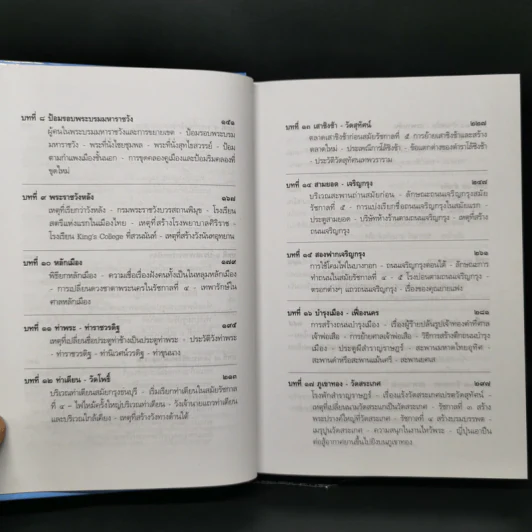 บทที่ ๘ ป้อมรอบพระบรมมหาราชวัง ๑๔๑
ผู้คนในพระบรมมหาราชวังและการขยายเขต - ป้อมรอบพระบรม
มหาราชวัง - พระที่นั่งไชยชุมพล - พระที่นั่งสุทไธสวรรย์ - ป้อม
ตามกำแพงเมืองชั้นนอก - การขุดคลองคูเมืองและป้อมริมคลองที่
ขุดใหม่
บทที่ ๙ พระราชวังหลัง ๑๖๗
เหตุที่เรียกว่าวังหลัง - กรมพระราชวังบวรสถานพิมุข - โรงเรียน
สตรีแห่งแรกในเมืองไทย - เหตุที่สร้างโรงพยาบาลศิริราช -
โรงเรียน King's College ที่สวนนันท์ - เหตุที่สร้างวังนันทอุทยาน
บทที่ ๑๐ หลักเมือง ๑๗๙
พิธียกหลักเมือง - ความเชื่อเรื่องฝังคนทั้งเป็นในหลุมหลักเมือง
- การเปลี่ยนดวงชาตาพระนครในรัชกาลที่ ๔ - เทพารักษ์ใน
ศาลหลักเมือง
บทที่ ๑๑ ท่าพระ - ท่าราชวรดิฐ ๑๙๕
เหตุที่เปลี่ยนชื่อประตูท่าช้างเป็นประตูท่าพระ - ประวัติวังท่าพระ
- ท่าราชวรดิฐ - ท่านิเวศน์วรดิฐ - ท่าขุนนาง
บทที่ ๑๒ ท่าเตียน - วัดโพธิ์ ๒๑๓
บริเวณท่าเตียนสมัยกรุงธนบุรี - เริ่มเรียกท่าเตียนในสมัยรัชกาล
ที่ ๔ - ไฟไหม้ครั้งใหญ่บริเวณท่าเตียน - วังเจ้านายแถวท่าเตียน
และบริเวณใกล้เคียง - เหตุที่สร้างวังทางด้านใต้
บทที่ ๑๓ เสาชิงช้า - วัดสุทัศน์ ๒๒๗
ตลาดเสาชิงช้าก่อนสมัยรัชกาลที่ ๕ การย้ายเสาชิงช้าและสร้าง
ตลาดใหม่ - ประเพณีโล้ชิงช้า - ข้อแตกต่างของตำราโล้ชิงช้า
- ประวัติวัดสุทัศนเทพวราราม
บทที่ ๑๔ สามยอด - เจริญกรุง ๒๔๗
บริเวณสะพานถ่านสมัยก่อน - ลักษณะถนนเจริญกรุงสมัย
รัชกาลที่ ๕ - การแบ่งเรียกชื่อถนนเจริญกรุงในสมัยแรก -
ประตูสามยอด - บริษัทห้างร้านตามถนนเจริญกรุง - เหตุที่สร้าง
ถนนเจริญกรุง
บทที่ ๑๕ สองฟากเจริญกรุง ๒๖๑
การใช้โคมไฟในบางกอก - ถนนเจริญกรุงตอนใต้ - ลักษณะการ
ทำถนนในสมัยรัชกาลที่ ๕ โรงบ่อนตามถนนเจริญกรุง -
ตรอกต่างๆ แถวถนนเจริญกรุง - เรื่องของคุณยายแฟง
บทที่ ๑๖ บำรุงเมือง - เฟื่องนคร ๒๘๑
การสร้างถนนบำรุงเมือง - เรื่องผู้ร้ายปล้นรูปเจ้าทองคำที่ศาล
เจ้าพ่อเสือ - การย้ายศาลเจ้าพ่อเสือ - วิธีการสร้างตึกถนนบำรุง
เมือง - ประตูผีสำราญราษฎร์ - สะพานมหาดไทยอุทิศ -
สะพานดำหรือสะพานแม้นศรี - สะพานยศเส
บทที่ ๑๗ ภูเขาทอง - วัดสระเกศ ๒๙๗
โรงพักสำราญราษฎร์ - เรื่องแร้งวัดสระเกศเปรตวัดสุทัศน์ -
เหตุที่เปลี่ยนนามวัดสระแกเป็นวัดสระเกศ - รัชกาลที่ ๓ สร้าง
พระปรางค์ใหญ่ที่วัดสระเกศ - รัชกาลที่ ๔ สร้างบรมบรรพต -
เมรุปูนวัดสระเกศ - ความสนุกในงานไหว้พระ - ญี่ปุ่นเอาปืน
ต่อสู้อากาศยานขึ้นไปยิงบนภูเขาทอง